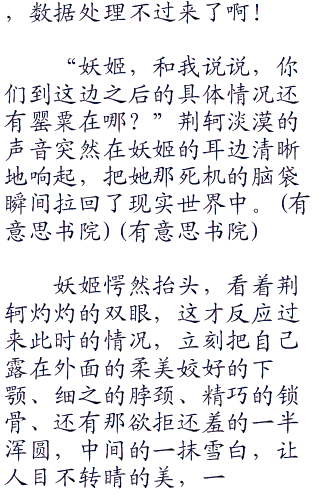 ，数据处理不过来了啊！
“妖姬，和我说说，你
们到这边之后的具体情况还
有罂粟在哪？”荆轲淡漠的
声音突然在妖姬的耳边清晰
地响起，把她那死机的脑袋
瞬间拉回了现实世界中。（有
意思书院）（有意思书院）
妖姬愕然抬头，看着荆
轲灼灼的双眼，这才反应过
来此时的情况，立刻把自己
露在外面的柔美姣好的下
颚、细之的脖颈、精巧的锁
骨、还有那欲拒还羞的一半
浑圆，中间的一抹雪白，让
人目不转睛的美，一